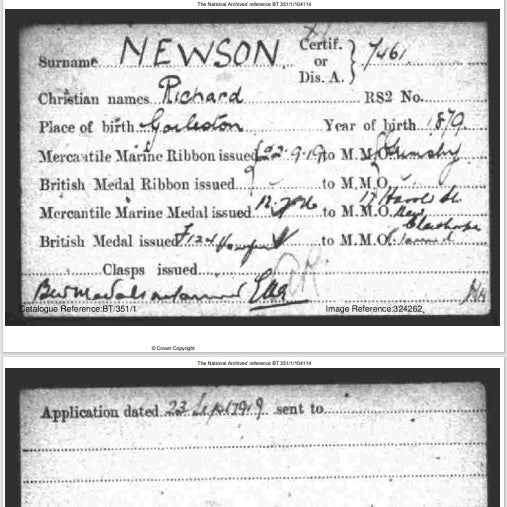 The National Archives' reference BT 351/1/104114
Surname NEWSON Certif. or Dis. A. } 7461
Christian names Richard RS2 No.
Place of birth Gorleston Year of birth 1879
Mercantile Marine Ribbon issued 22.9.19 to M.M.O. Grimsby
British Medal Ribbon issued to M.M.O.
Mercantile Marine Medal issued to M.M.O. 17 Harold St.
New Cleethorpes
British Medal issued to M.M.O.
Clasps issued
Catalogue Reference:BT/351/1 Image Reference:324262
© Crown Copyright
The National Archives' reference BT 351/1/104114
Application dated 23 Sep 1919 sent to